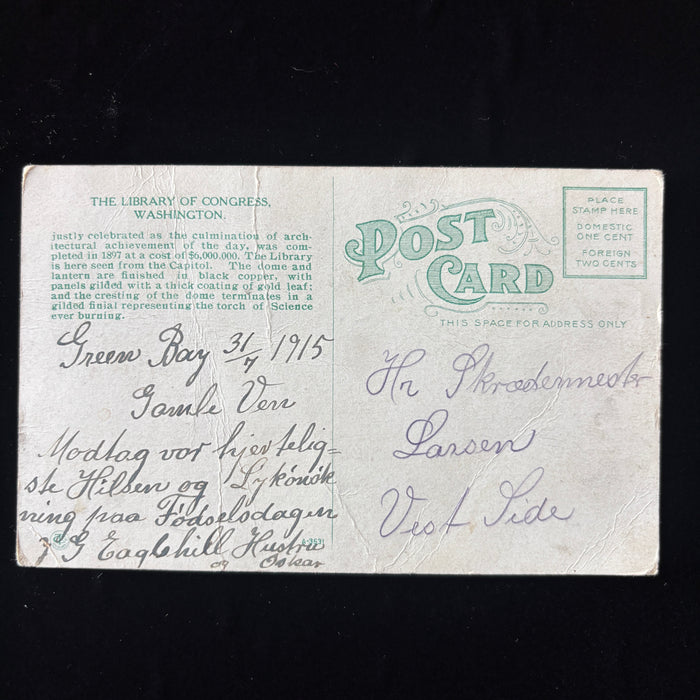 THE LIBRARY OF CONGRESS,
WASHINGTON.
justly celebrated as the culmination of arch-
itectural achievement of the day, was com-
pleted in 1897 at a cost of $6,000,000. The Library
is here seen from the Capitol. The dome and
lantern are finished in black copper, with
panels gilded with a thick coating of gold leaf;
and the cresting of the dome terminates in a
gilded finial representing the torch of Science
ever burning.
Green Bay 31/7 1915
Gamle Ven
Modtag vor hjertelig=
ste Hilsen og Lykönsk
ning paa Födselsdagen
J G Eaglehill Hustru
og Oskar
POST CARD
THIS SPACE FOR ADDRESS ONLY
PLACE
STAMP HERE
DOMESTIC
ONE CENT
FOREIGN
TWO CENTS
Hr Skrædermestr
Larsen
Vest Side